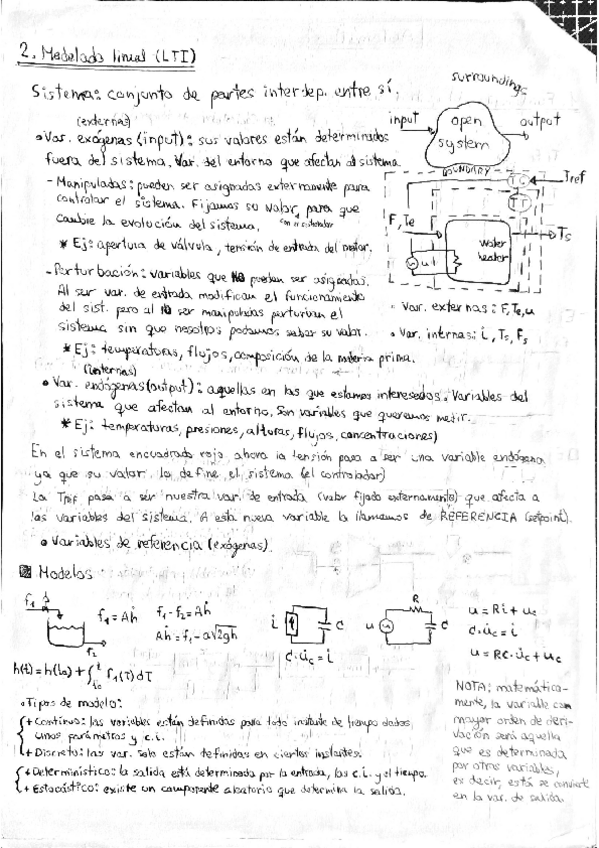 2. Modelado lineal (LTI)
Sistema: conjunto de partes interdep. entre sí.
(externas)
• Var. exógenas (input): sus valores están determinados
fuera del sistema, Var. del entorno que afectan al sistema
- Manipuladas: pueden ser asignadas externamente para
controlar el sistema. Fijamos su valor para que
cambie la evolución del sistema.
* Ej: apertura de válvula, tensión de entrada del motor.
- Perturbación: variables que NO pueden ser asignadas.
Al ser var. de entrada modifican el funcionamiento
del sist. pero al no ser manipuladas perturban el
sistema sin que nosotros podamos saber su valor.
* Ej: temperaturas, flujos, composición de la materia prima.
surroundings
input
open
system
output
BOUNDARY
TC
Tref
TT
F, Te
water
heater
Ts
u
i
• Var. externas: F, Te, u
• Var. internas: i, Ts, Fs
(internas)
• Var. endógenas (output): aquellas en las que estamos interesados. Variables del
sistema que afectan al entorno, Son variables que queremos medir.
* Ej: temperaturas, presiones, alturas, flujos, concentraciones)
En el sistema encuadrado rojo ahora la tensión pasa a ser una variable endógena
ya que su valor lo define el sistema (el controlador)
La Tref pasa a ser nuestra var. de entrada (valor fijado externamente) que afecta a
las variables del sistema. A esta nueva variable la llamamos de REFERENCIA (setpoint).
• Variables de referencia (exógenas).
Modelos
f₁
f₂
f₁ = Aḣ
f₁ - f₂ = Aḣ
Aḣ = f₁ - a√2gh
h(t) = h(t₀) + ∫ f₁(τ) dτ
i
C
C·u̇c = i
u
R
C
u = Ri + uc
C·u̇c = i
u = RC·u̇c + uc
• Tipos de modelo:
+ Continuo: las variables están definidas para todo instante de tiempo dados
unos parámetros y c.i.
+ Discreto: las var. solo están definidas en ciertos instantes.
+ Determinístico: la salida está determinada por la entrada, las c.i. y el tiempo.
+ Estocástico: existe un componente aleatorio que determina la salida.
NOTA: matemática-
mente, la variable con
mayor orden de deri-
vación será aquella
que es determinada
por otras variables,
es decir, está se convierte
en la var. de salida.